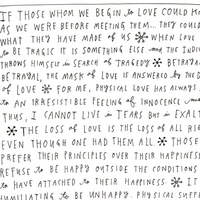 IF THOSE WHOM WE BEGIN TO LOVE COULD
AS WE WERE BEFORE MEETING THEM... THEY COUL
WHAT THEY HAVE MADE OF US ✻ WHEN LOVE
TO BE TRAGIC IT IS SOMETHING ELSE AND THE INDI
THROWS HIMSELF IN SEARCH OF TRAGEDY ✻ BETRAYA
BETRAYAL, THE MASK OF LOVE IS ANSWERED BY THE D
OF LOVE ✻ FOR ME, PHYSICAL LOVE HAS ALWAYS
TO AN IRRESISTIBLE FEELING OF INNOCENCE
THUS, I CANNOT LIVE IN TEARS BUT IN EXALT
✻ THE LOSS OF LOVE IS THE LOSS OF ALL RIG
EVEN THOUGH ONE HAD THEM ALL ✻ THOSE
PREFER THEIR PRINCIPLES OVER THEIR HAPPINESS
REFUSE TO BE HAPPY OUTSIDE THE CONDITIONS
TO HAVE ATTACHED TO THEIR HAPPINESS. ✻ IT
HUMILIATING TO BE UNHAPPY. PHYSICAL SUFFE